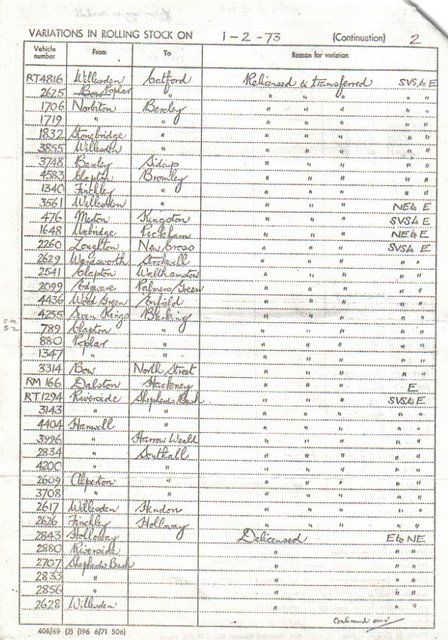 VARIATIONS IN ROLLING STOCK ON 1-2-73 (Continuation) 2
Vehicle number From To Reason for variation
RT4816 Willesden Catford Relicensed & transferred SVS & E
2625 Bow Poplar " " " " " "
1706 Norbiton Bexley " " " " "
1719 " " " " " " "
1832 Stonebridge " " " " " "
3855 Willesden " " " " " "
3748 Bexley Sidcup " " " " "
4583 Clapton Bromley " " " " "
1340 Finchley " " " " " "
3561 Willesden " " " " NE & E
476 Merton Kingston " " " SVS & E
1648 Uxbridge Peckham " " " NE & E
2260 Loughton New Cross " " " SVS & E
2629 Wandsworth Stockwell " " " " "
2541 Clapton Walthamstow " " " " "
2099 Edgware Palmers Green " " " " "
4436 Wood Green Enfield " " " " "
4255 Seven Kings Barking " " " " "
789 Clapton " " " " " "
880 Poplar " " " " " "
1347 " " " " " " "
3314 Bow North Street " " " " "
RM 166 Dalston Hackney " " " E
RT1294 Riverside Shepherds Bush " " " SVS & E
3143 " " " " " " "
4404 Hanwell " " " " " "
3996 " Harrow Weald " " " " "
2834 " Southall " " " " "
4200 " " " " " " "
2609 Alperton " " " " " "
3708 " " " " " " "
2617 Willesden Hendon " " " " "
2626 Finchley Holloway " " " " "
2843 Holloway Delicensed E & NE
2880 Riverside " " "
2707 Shepherds Bush " " "
2833 " " " "
2856 " " " "
2628 Willesden " " "
Continued over
408/69 (2) (196 6/71 508)